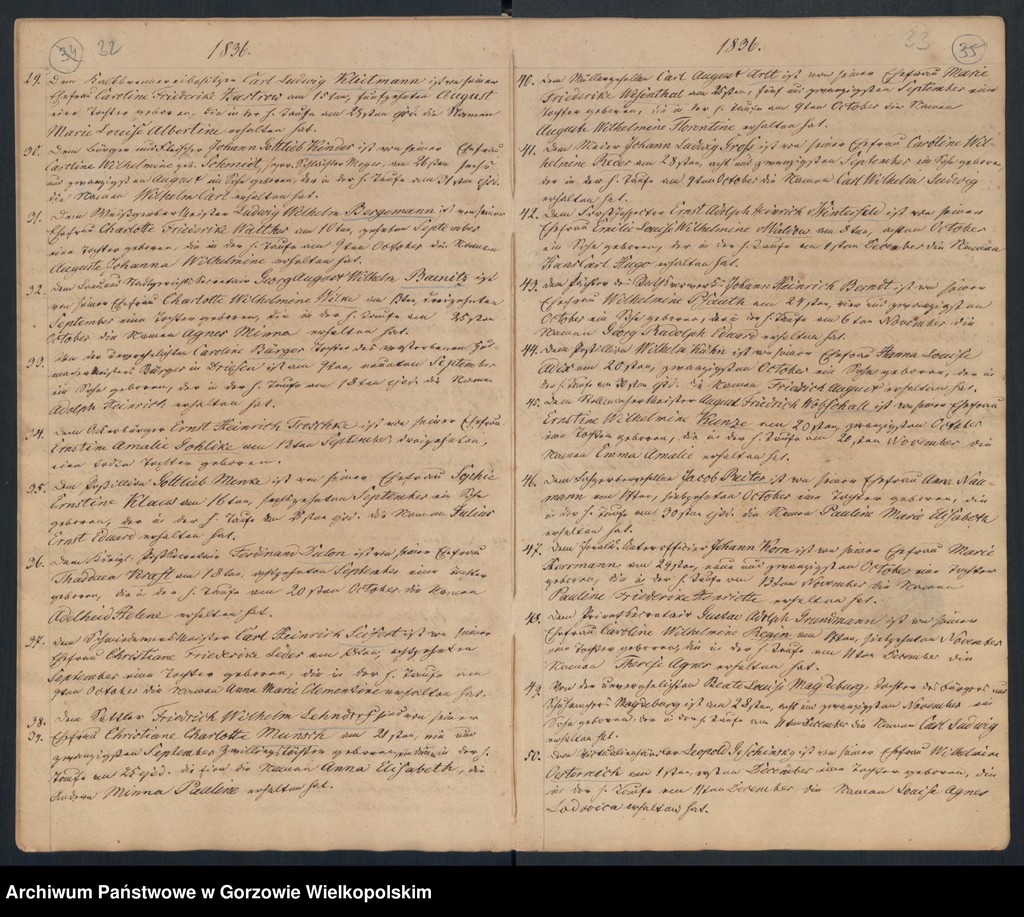 34 32
1836.
29. Dem Kalkbrennereibesitzer Carl Ludwig Kleitmann ist von seiner
Ehefrau Caroline Friederike Kastrow am 15ten, fünfzehnten August
eine Tochter geboren, die in der h. Taufe am 28sten ejsd. die Namen
Marie Louise Albertine erhalten hat.
30. Dem Bürger und Fleischer Johann Gottlieb Künder ist von seiner Ehefrau
Caroline Wilhelmine geb. Schmidt, am 26sten sechs
und zwanzigsten August ein Sohn geboren, der in der h. Taufe am 31sten ejsd.
die Namen Wilhelm Carl erhalten hat.
31. Dem Weißgerbermeister Ludwig Wilhelm Bergemann ist von seiner
Ehefrau Charlotte Friederike Walther am 10ten, zehnten September
eine Tochter geboren, die in der h. Taufe am 9ten October die Namen
Auguste Johanna Wilhelmine erhalten hat.
32. Dem Land und Stadtgericht Secretair Georg August Wilhelm Baenitz ist
von seiner Ehefrau Charlotte Wilhelmine Wilke am 13ten, dreizehnten
September eine Tochter geboren, die in der h. Taufe am 25sten
October die Namen Agnes Minna erhalten hat.
33. Von der unverehelichten Caroline Bürger Tochter des verstorbenen
Bürger in Driesen ist am 9ten, neunten September
ein Sohn geboren, der in der h. Taufe am 18ten ejsd. die Namen
Adolph Heinrich erhalten hat.
34. Dem Ackerbürger Ernst Heinrich Troschke ist von seiner Ehefrau
Ernstine Amalie Pohlike am 13ten September, dreizehnten,
eine todte Tochter geboren.
35. Dem Postillion Gottlieb Menke ist von seiner Ehefrau Sophie
Ernstine Klaus am 16ten, sechszehnten September ein Sohn
geboren, der in der h. Taufe am 25sten ejsd. die Namen Julius
Ernst Eduard erhalten hat.
36. Dem Königl. Post Secretair Ferdinand Dulon ist von seiner Ehefrau
Thaddaea Kraft am 18ten, achtzehnten September eine Tochter
geboren, die in der h. Taufe am 20sten October die Namen
Adelheid Helene erhalten hat.
37. Dem Schneidermeister Carl Heinrich Seifert ist von seiner
Ehefrau Christiane Friederike Leder am 18ten, achtzehnten
September eine Tochter geboren, die in der h. Taufe am
9ten October die Namen Anna Marie Clementine erhalten hat.
38. Dem Sattler Friedrich Wilhelm Lehndorf sind von seiner
39. Ehefrau Christiane Charlotte Munsch am 21sten, ein und
zwanzigsten September Zwillingstöchter geboren, in der h.
Taufe am 25 ejsd. die eine die Namen Anna Elisabeth, die
andere Minna Pauline erhalten hat.
33 35
1836.
40. Dem Müllergesellen Carl August Arlt ist von seiner Ehefrau Marie
Friederike Wesenthal am 25sten, fünf und zwanzigsten September eine
Tochter geboren, die in der h. Taufe am 9ten October die Namen
Auguste Wilhelmine Florentine erhalten hat.
41. Dem Maurer Johann Ludwig Gross ist von seiner Ehefrau Caroline Wil-
helmine Reder am 28sten, acht und zwanzigsten September ein Sohn geboren,
der in der h. Taufe am 9ten October die Namen Carl Wilhelm Ludwig
erhalten hat.
42. Dem Forstinspector Ernst Adolph Heinrich v Winterfeld ist von seiner
Ehefrau Emilie Louise Wilhelmine v Nickisch am 8ten, achten October
ein Sohn geboren, der in der h. Taufe am 1sten December die Namen
Hans Carl Hugo erhalten hat.
43. Dem Pächter des Johann Heinrich Berndt ist von seiner
Ehefrau Wilhelmine Pfauth am 24sten, vier und zwanzigsten
October ein Sohn geboren, der in der h. Taufe am 6ten November die
Namen Georg Rudolph Eduard erhalten hat.
44. Dem Postillion Wilhelm Kühn ist von seiner Ehefrau Hanna Louise
Adix am 20sten, zwanzigsten October ein Sohn geboren, der in
der h. Taufe am 30sten ejsd. die Namen Friedrich August erhalten hat.
45. Dem Stellmachermeister August Friedrich Wobschall ist von seiner Ehefrau
Ernstine Wilhelmine Kunze am 20sten, zwanzigsten October
eine Tochter geboren, die in der h. Taufe am 20sten November die
Namen Emma Amalie erhalten hat.
46. Dem Lohgerbergesellen Jacob Reiter ist von seiner Ehefrau Clara Nau-
mann am 17ten, siebzehnten October eine Tochter geboren, die
in der h. Taufe am 30sten ejsd. die Namen Pauline Marie Elisabeth
erhalten hat.
47. Dem Invalid. Unterofficier Johann Korn ist von seiner Ehefrau Marie
Herrmann am 29sten, neun und zwanzigsten October eine Tochter
geboren, die in der h. Taufe am 13ten November die Namen
Pauline Friederike Henriette erhalten hat.
48. Dem Privatsecretair Gustav Adolph Grundmann ist von seiner
Ehefrau Caroline Wilhelmine Regen am 17ten, siebzehnten November
eine Tochter geboren, die in der h. Taufe am 11ten December die
Namen Therese Agnes erhalten hat.
49. Von der unverehelichten Beate Louise Magdeburg, Tochter des Bürgers und
Schuhmachers Magdeburg ist am 28sten, acht und zwanzigsten November ein
Sohn geboren, der in der h. Taufe am 11ten December die Namen Carl Ludwig
erhalten hat.
50. Dem Victualienhändler Leopold Gyschinsky ist von seiner Ehefrau Wilhelmine
Oesterreich am 1sten, ersten December eine Tochter geboren, die
in der h. Taufe am 11ten December die Namen Louise Agnes
Lodovica erhalten hat.
Archiwum Państwowe w Gorzowie Wielkopolskim